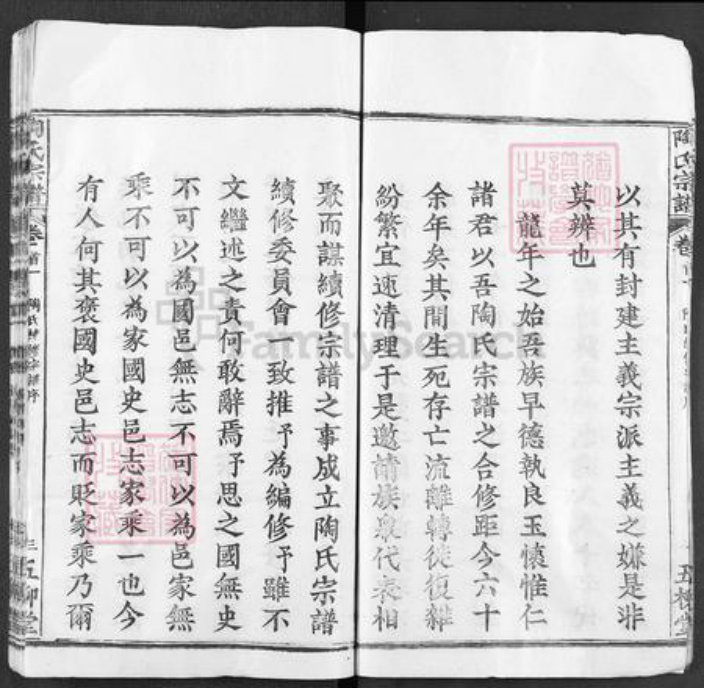 陶氏宗譜
卷首
五柳堂
以其有封建主義宗派主義之嫌是非
莫辨也
龍年之始吾族早德執良玉懷惟仁
諸君以吾陶氏宗譜之合修距今六十
余年矣其間生死存亡流離轉徙復雜
紛繁宜速清理于是邀請族衆代表相
聚而謀續修宗譜之事成立陶氏宗譜
續修委員會一致推予為編修予雖不
文繼述之責何敢辭焉予思之國無史
不可以為國邑無志不可以為邑家無
乘不可以為家國史邑志家乘一也今
有人何其褒國史邑志而貶家乘乃爾
陶氏宗譜
卷首一
三
五柳堂
FamilySearch